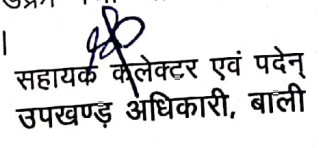 सहायक कलेक्टर एवं पदेन्
उपखण्ड़ अधिकारी, बाली